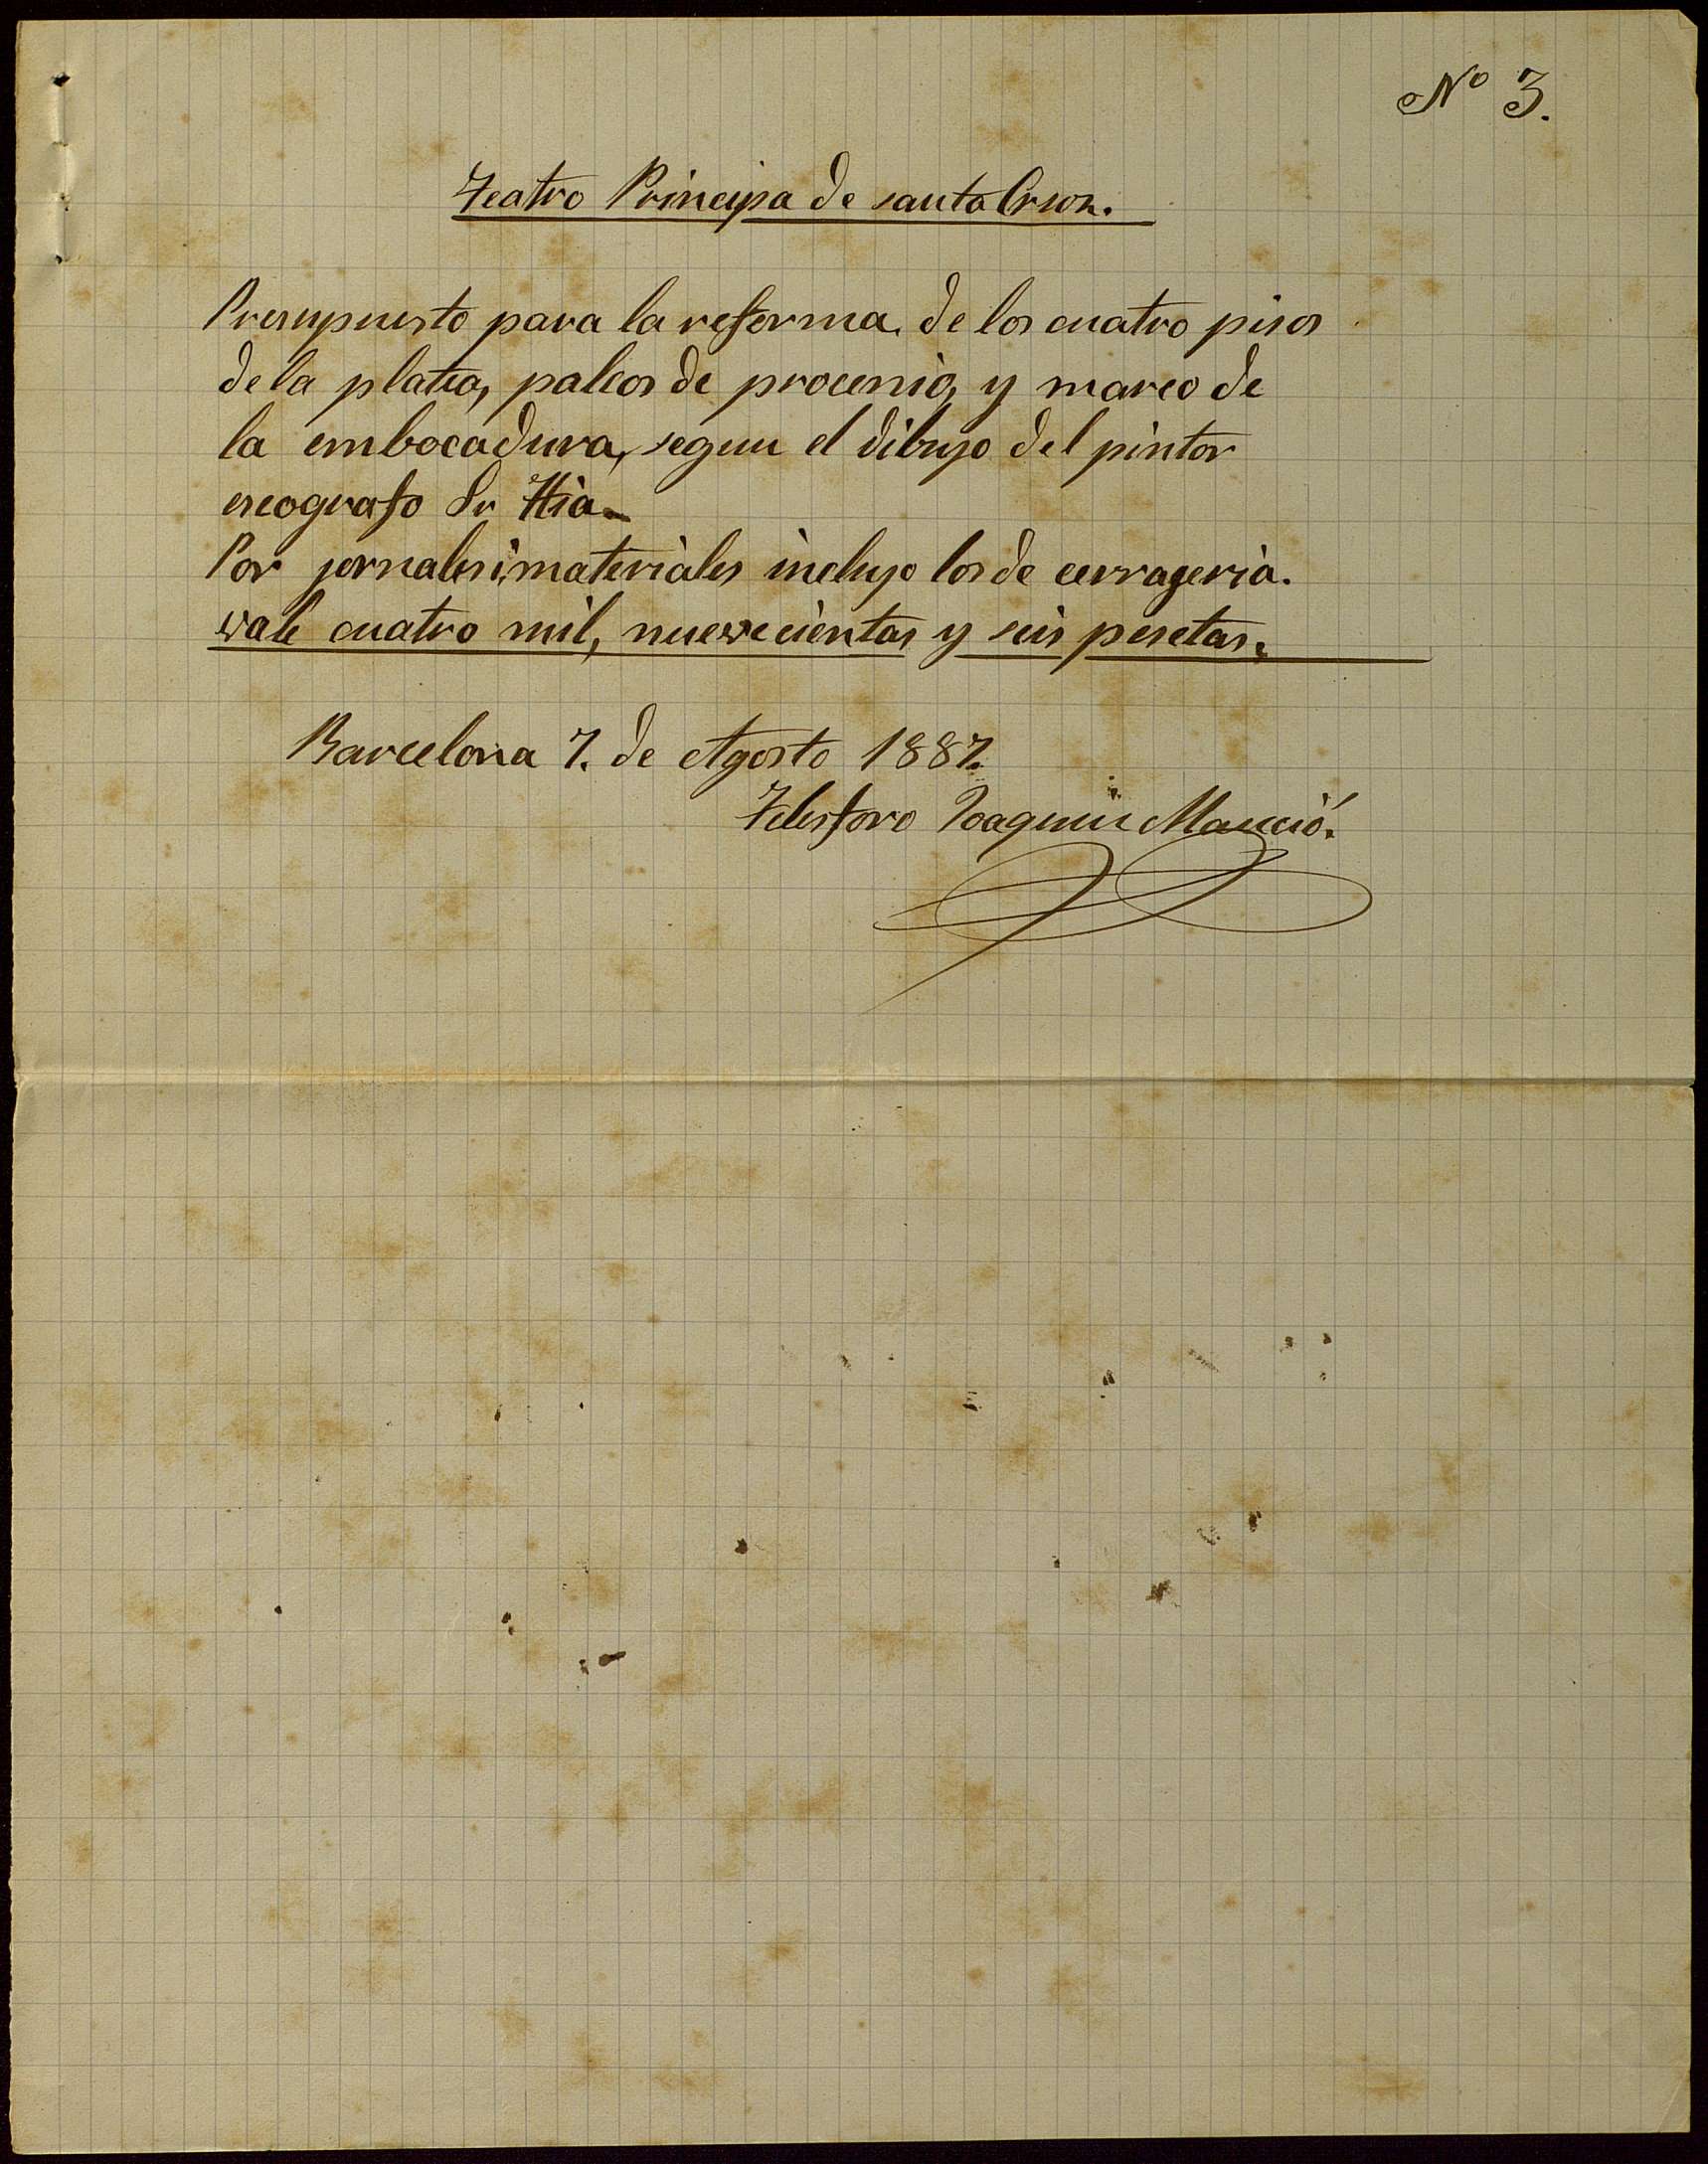 Nº 3.
Teatro Principa de santa Crus.
Presupuesto para la reforma, de los cuatro pisos
de la platea, palcos de procenio, y marco de
la embocadura, segun el dibujo del pintor
escografo Sr
Por jornales i materiales incluyo los de cerrageria.
vale cuatro mil, nuevecientas y seis pesetas.
Barcelona 7. de Agosto 1887.
Telesforo Joaquin